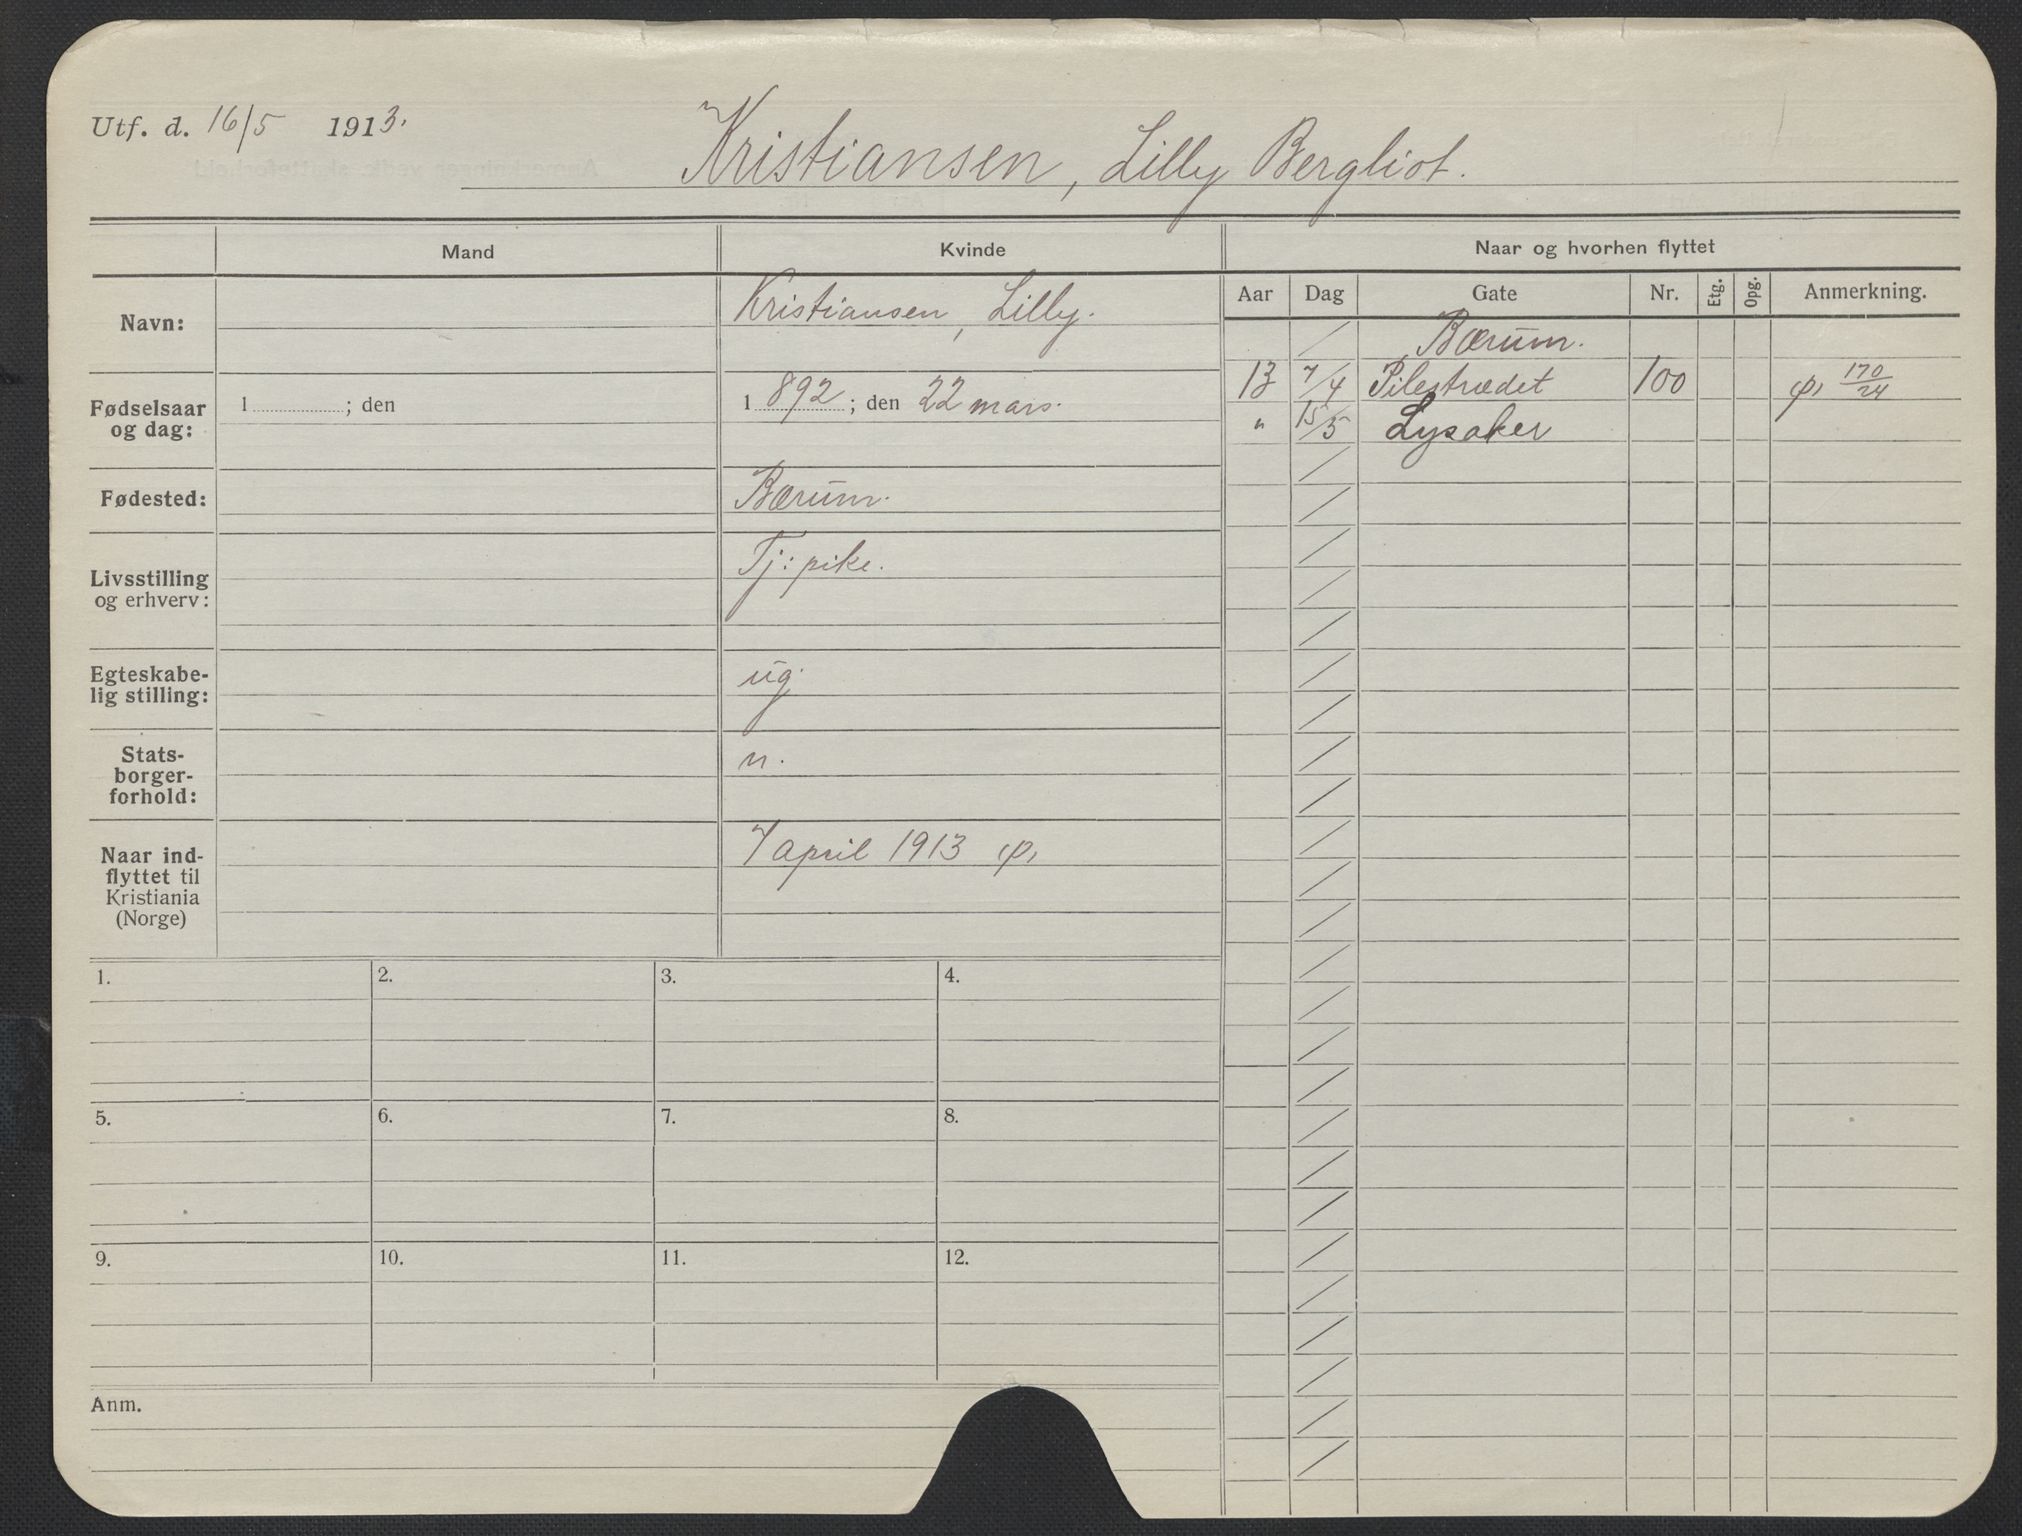 Utf. d. 16/5 1913.
Kristiansen, Lilly Bergliot.
Mand
Kvinde
Naar og hvorhen flyttet
Aar Dag Gate Nr. Etg. Opg. Anmerkning.
Navn:
Kristiansen, Lilly.
Bærum.
13 7/4 Pilestrædet 100 170/24
" 15/5 Lysaker
Fødselsaar
og dag:
1 ; den
1 892 ; den 22 mars.
Fødested:
Bærum.
Livsstilling
og erhverv:
Tj: pike.
Egteskabe-
lig stilling:
ug.
Stats-
borger-
forhold:
n.
Naar ind-
flyttet til
Kristiania
(Norge)
7 april 1913
1. 2. 3. 4.
5. 6. 7. 8.
9. 10. 11. 12.
Anm.